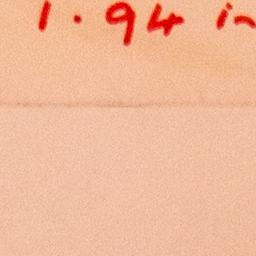 1.94 in